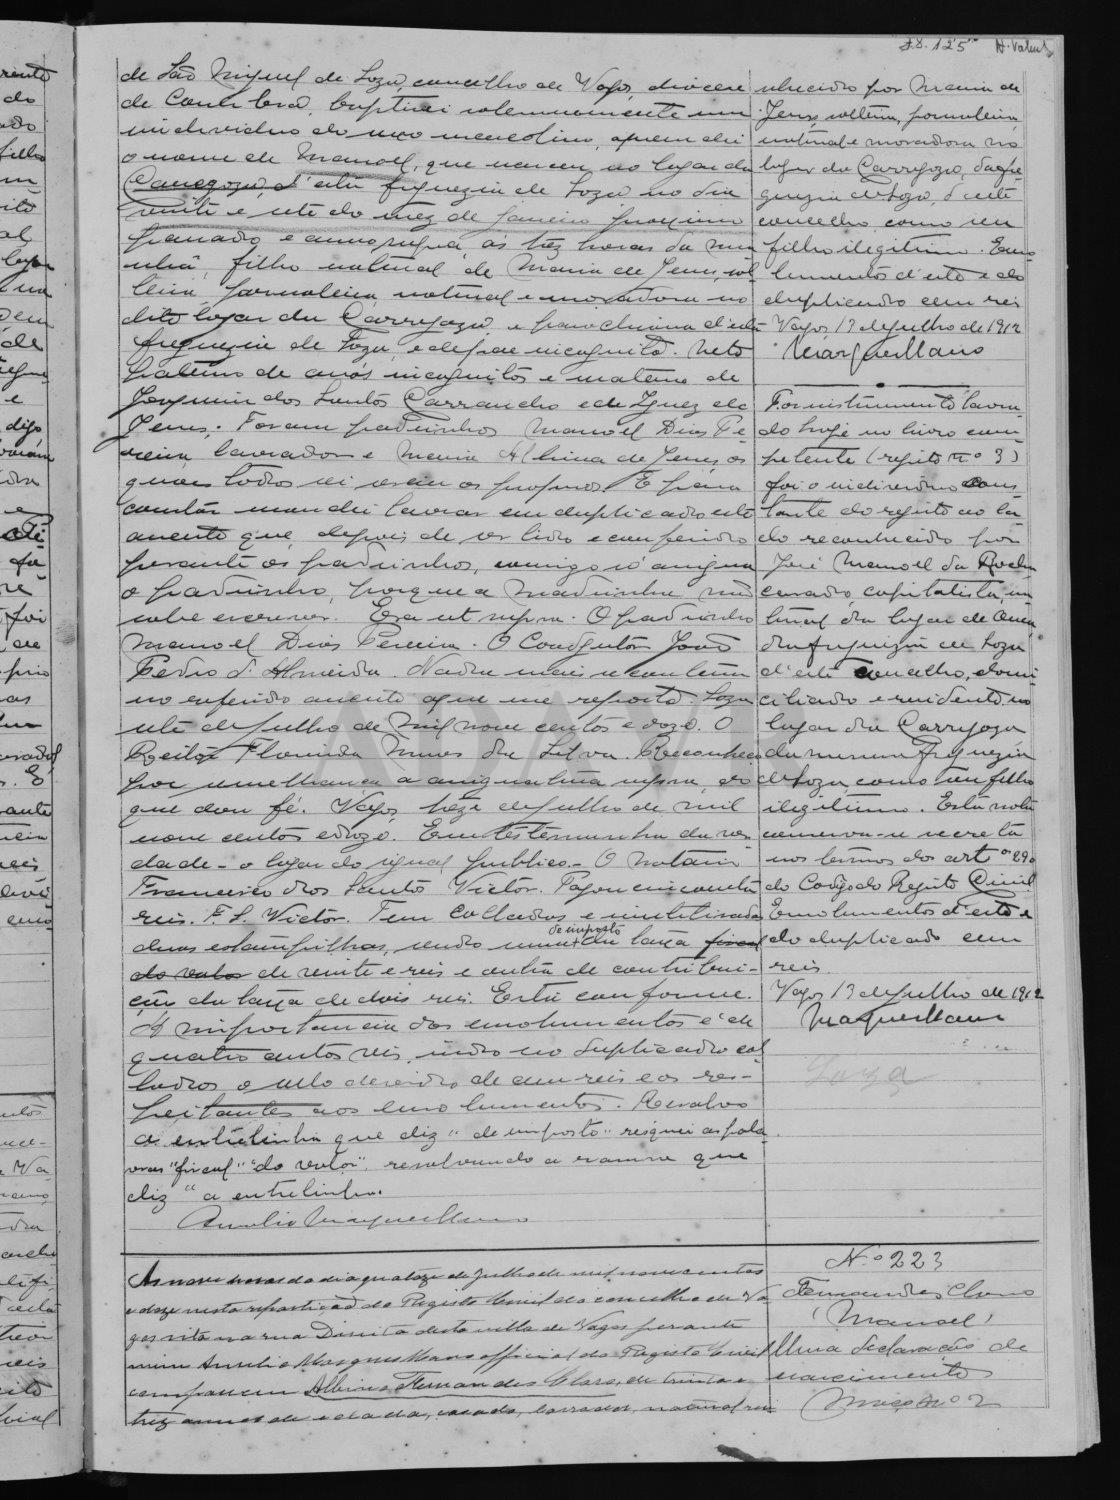 de São Miguel de Soza, concelho de Vagos, diocese
de Coimbra, baptisei solemnemente um
individuo do sexo masculino, a quem dei
o nome de Manoel, que nasceu no logar da
Carregosa, d'esta freguezia de Soza no dia
vinte e sete do mez de Janeiro proximo
passado, e anno supra, ás tez horas da ma
nhã, filho natural de Maria de Jesus, sol
teira, jornaleira, natural e moradora no
dito logar da Carregoza, e parochiana d'esta
freguezia de Soza, e de pae incognito. Neto
paterno de avós incognitos e materno de
Joaquim dos Santos Carrancho e de Ignez de
Jesus. Foram padrinhos Manoel Dias Pe
reira, lavrador e Maria Albina de Jesus, os
quaes todos sei serem os proprios. E para
constar mandei lavrar em duplicado este
assento que, depois de ser lido e conferido
perante os padrinhos, comigo só assigna
o padrinho, porque a madrinha não
sabe escrever. Era ut supra. O padrinho
Manoel Dias Pereira. O Coadjutor João
Pedro d'Almeida. Nada mais se contem
no referido assento a que me reporto. Soza
sete de Julho de mil nove centos e doze. O
Reitor Florindo Nunes da Silva. Reconheço
por semelhança a assignatura supra, do
que dou fé. Vagos, treze de Julho de mil
nove centos e doze. Em testemunho da ver
dade - o logar do signal publico - O Notario
Francisco dos Santos Victor. Pagou cincoenta
reis. F. S. Victor. Tem collados e inutilisados
de imposto
duas estampilhas, sendo uma da taxa fiscal
do valor de vinte e reis e outra de contribui-
ção da taxa de dois reis. Está conforme.
A importancia dos emolumentos é de
quatro centos reis, indo no duplicado col
lados o sello devido, de cem reis e os res-
peitantes aos emolumentos. Resalvo
a entrelinha que diz "de imposto" risquei as pala
vras "fiscal" "do valor", resalvando a rasura que
diz "a entrelinha.
Aurelio Marques Mano
As nove horas do dia quatoze de Julho de mil novecentos
e doze nesta repartição do Registo Civil do concelho de Va
gos sita na rua Direita desta villa de Vagos perante
mim Aurelio Marques Mano official do Registo Civil
compareceu Albino Fernandes Claro, de trinta e
trez annos de edade, casado, lavrador, natural
fls. 125
nhecido por Maria de
Jesus, solteira, jornaleira,
natural e moradora no
logar da Carregoza, da fre
guezia de Soza, d'este
concelho, como seu
filho ilegitimo. Emo
lumentos d'este e do
duplicado cem reis
Vagos 13 de Julho de 1912
Marques Mano
Por instrumento lavra
do hoje no livro com-
petente (registo n.º 3)
foi o individuo cons
tante do registo ao la
do reconhecido por
José Manoel da Rocha
casado, capitalista, na
tural do logar de
da freguezia de Soza
d'este concelho, domi
ciliado e residente no
logar da Carregoza
da mesma freguezia
de Soza, como seu filho
ilegitimo. Esta nota
conserva-se secreta
nos termos do artº 29º
do Codigo do Registo Civil
Emolumentos d'este e
do duplicado cem
reis.
Vagos 13 de Julho de 1912
Marques Mano
Soza
N.º 223
Fernandes Claro
(Manoel)
Uma declaração de
nascimento
Maço nº 2